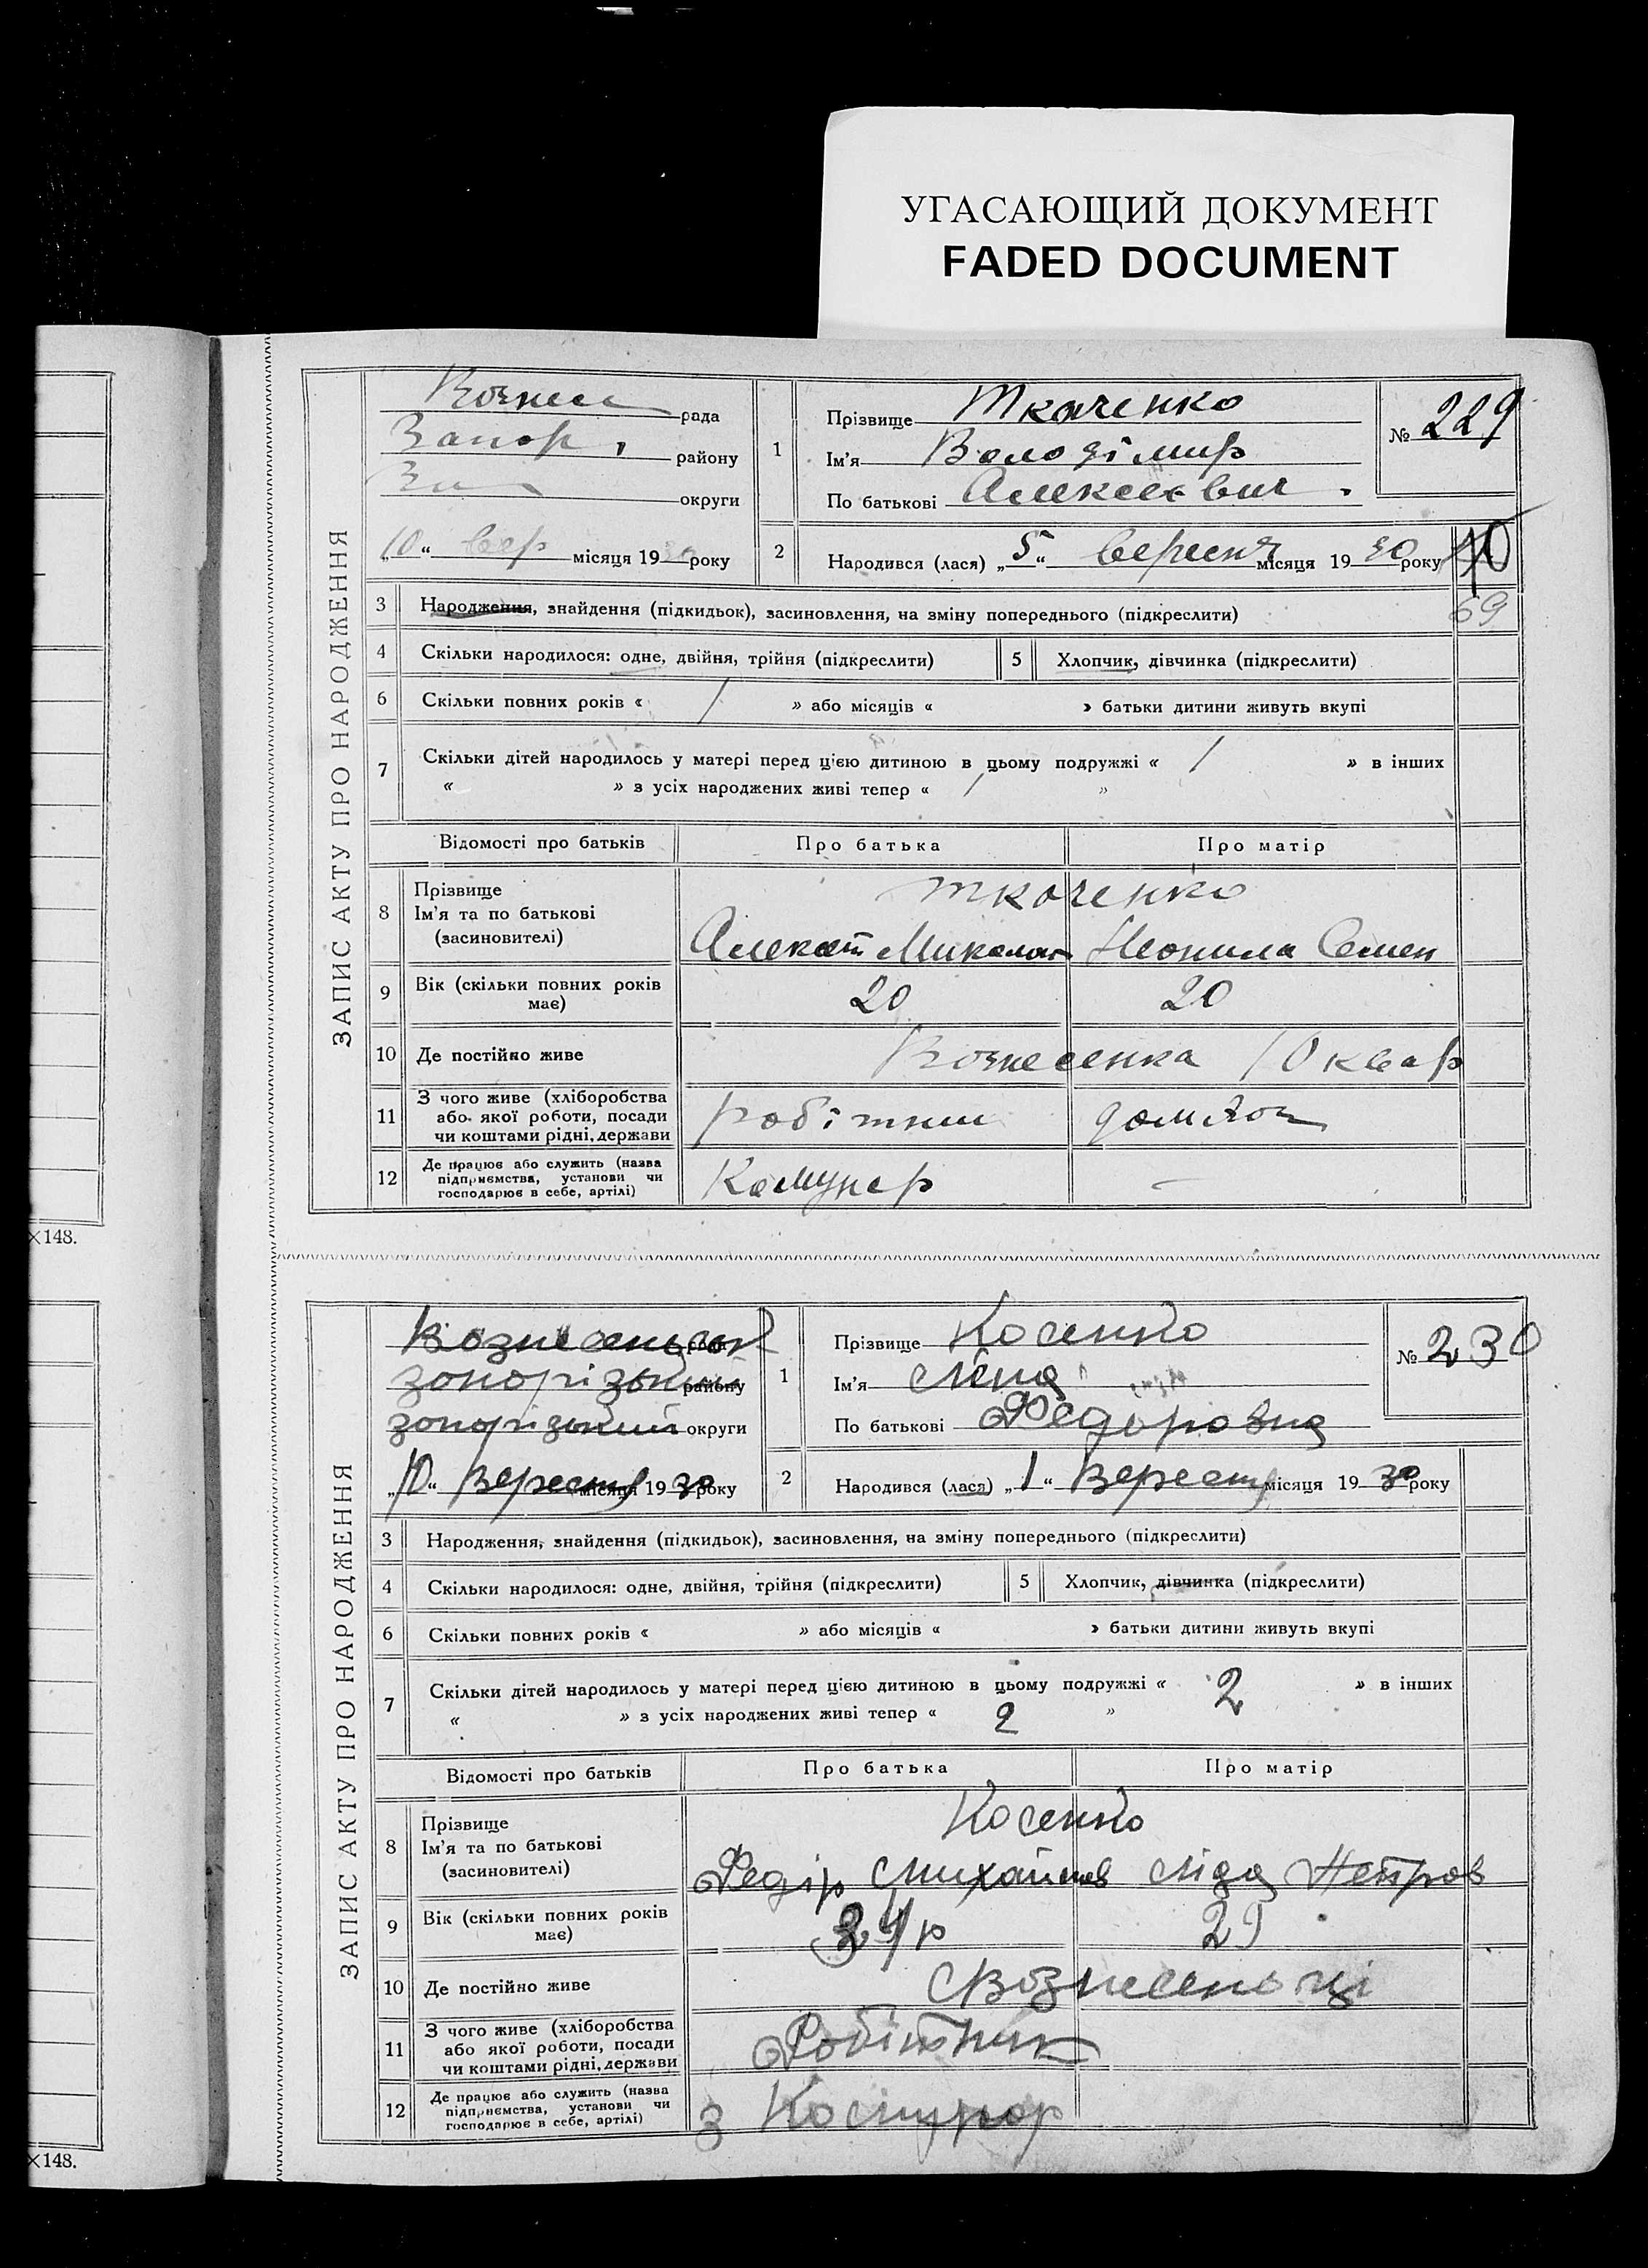 УГАСАЮЩИЙ ДОКУМЕНТ
FADED DOCUMENT
ЗАПИС АКТУ ПРО НАРОДЖЕННЯ
Вознес рада
Запор. району
Зап округи
„10“ вер місяця 1930 року
1
Прізвище Ткаченко
Ім'я Володімир
По батькові Алексеєвич.
№ 229
2
Народився (лася) „5“ вересня місяця 1930 року
10
69
3 Народження, знайдення (підкидьок), засиновлення, на зміну попереднього (підкреслити)
4 Скільки народилося: одне, двійня, трійня (підкреслити) 5 Хлопчик, дівчинка (підкреслити)
6 Скільки повних років « / » або місяців « » батьки дитини живуть вкупі
7 Скільки дітей народилось у матері перед цією дитиною в цьому подружжі « / » в інших
« » з усіх народжених живі тепер « / »
Відомості про батьків Про батька Про матір
8 Прізвище
Ім'я та по батькові
(засновителі)
Ткаченко
Алексей Миколає Неонила Семен
9 Вік (скільки повних років має) 20 20
10 Де постійно живе Вознесенка 10 квар
11 З чого живе (хліборобства
або якої роботи, посади
чи коштами рідні, держави
робітник
12 Де працює або служить (назва
підприємства, установи чи
господарює в себе, артілі)
Комунар —
×148.
ЗАПИС АКТУ ПРО НАРОДЖЕННЯ
Вознесеньськ рада
запорізький району
запорізький округи
„10“ Вересня місяця 1930 року
1
Прізвище Косенко
Ім'я Ліна
По батькові Федоровна
№ 230
2
Народився (лася) „1“ Вересня місяця 1930 року
3 Народження, знайдення (підкидьок), засиновлення, на зміну попереднього (підкреслити)
4 Скільки народилося: одне, двійня, трійня (підкреслити) 5 Хлопчик, дівчинка (підкреслити)
6 Скільки повних років « » або місяців « » батьки дитини живуть вкупі
7 Скільки дітей народилось у матері перед цією дитиною в цьому подружжі « 2 » в інших
« » з усіх народжених живі тепер « 2 »
Відомості про батьків Про батька Про матір
8 Прізвище
Ім'я та по батькові
(засиновителі)
Косенко
Федір Михайлов Ліда Петров
9 Вік (скільки повних років має) 34 р 29
10 Де постійно живе с Вознесеньці
11 З чого живе (хліборобства
або якої роботи, посади
чи коштами рідні, держави
Робітник
12 Де працює або служить (назва
підприємства, установи чи
господарює в себе, артілі)
З Комунар
×148.